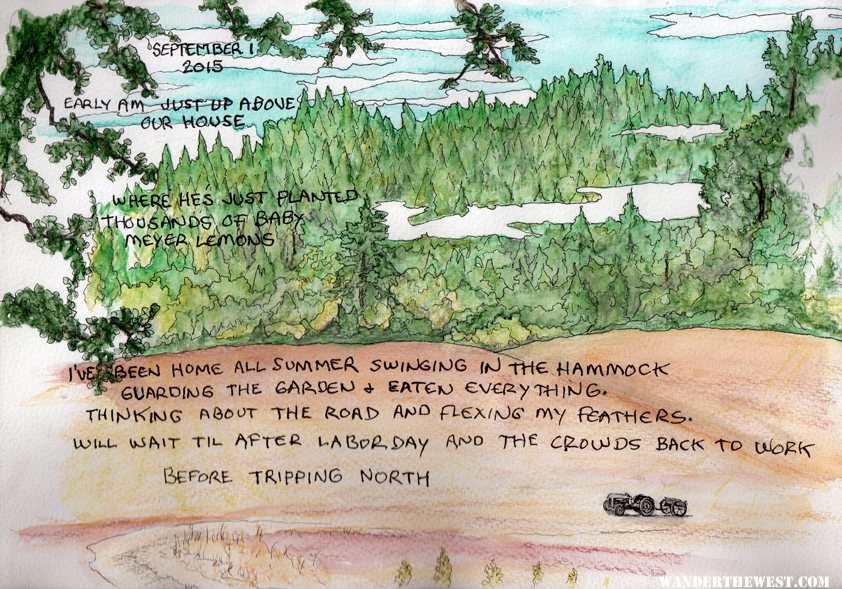 SEPTEMBER 1
2015
EARLY AM JUST UP ABOVE
OUR HOUSE
WHERE HES JUST PLANTED
THOUSANDS OF BABY
MEYER LEMONS
I'VE BEEN HOME ALL SUMMER SWINGING IN THE HAMMOCK
GUARDING THE GARDEN & EATEN EVERYTHING.
THINKING ABOUT THE ROAD AND FLEXING MY FEATHERS.
WILL WAIT TIL AFTER LABORDAY AND THE CROWDS BACK TO WORK
BEFORE TRIPPING NORTH
WANDERTHEWEST.COM